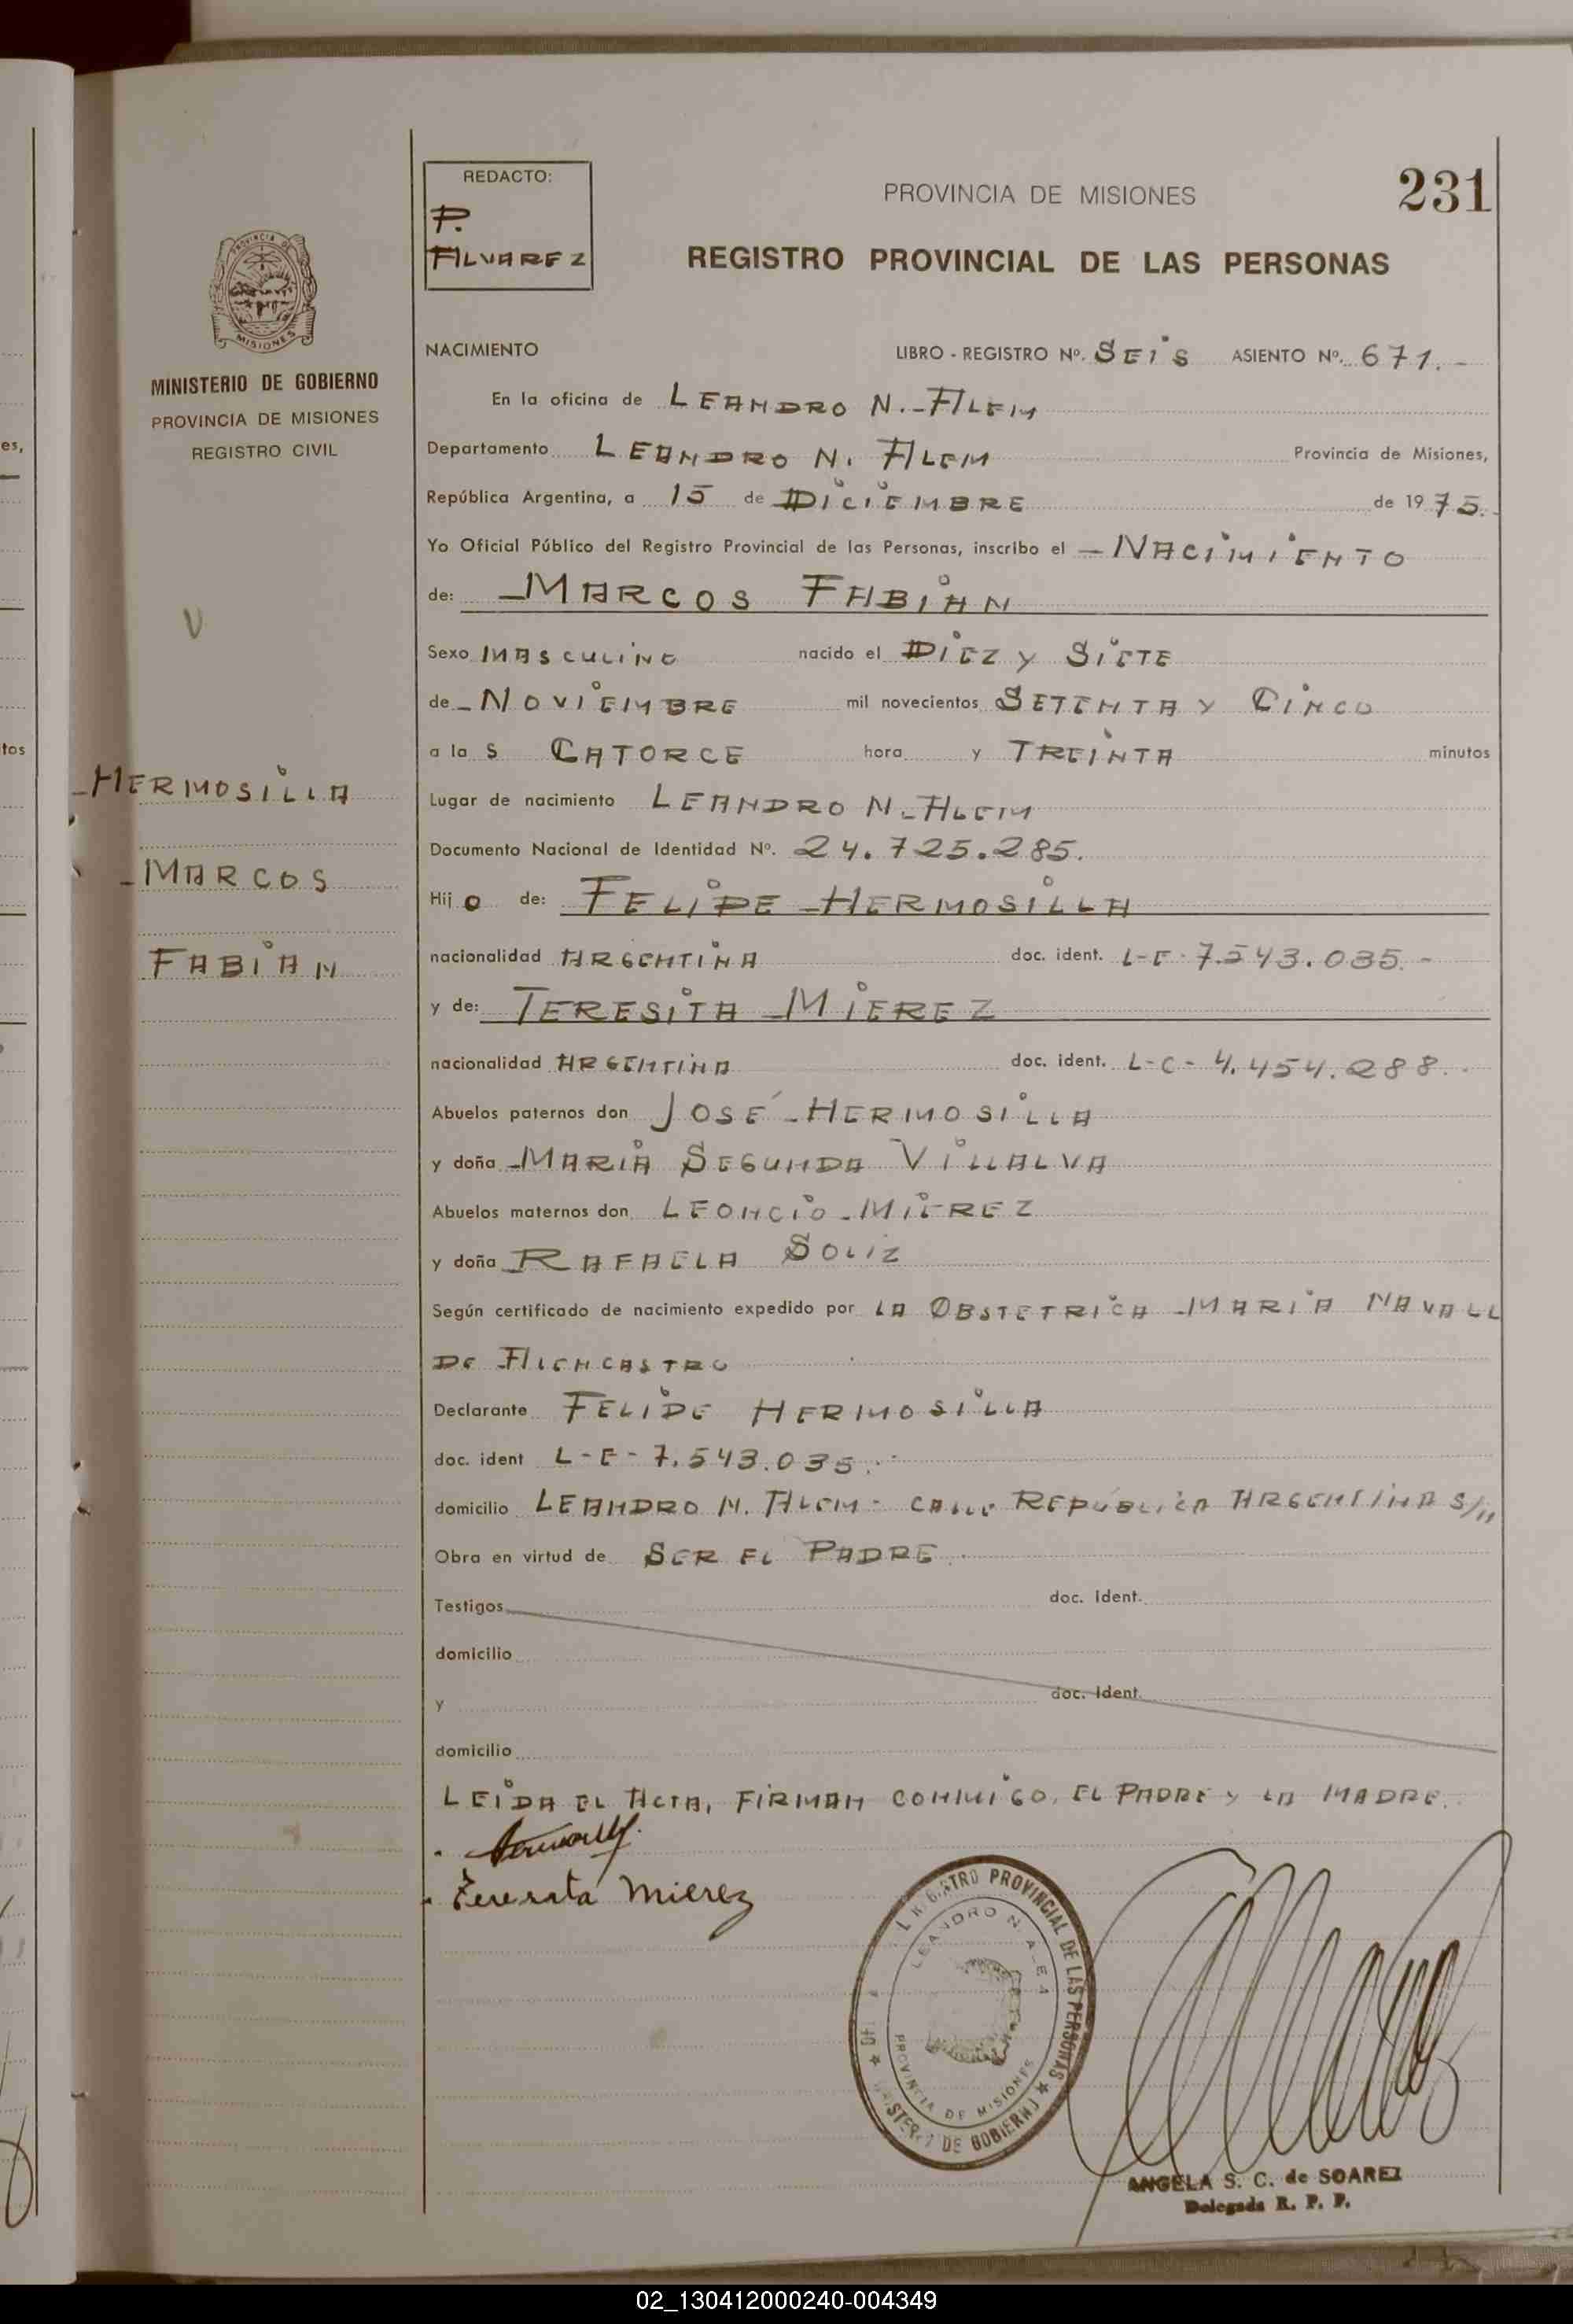 REDACTO:
P.
ALVAREZ
PROVINCIA DE MISIONES
231
REGISTRO PROVINCIAL DE LAS PERSONAS
MISIONES
MINISTERIO DE GOBIERNO
PROVINCIA DE MISIONES
REGISTRO CIVIL
NACIMIENTO LIBRO - REGISTRO Nº. SEIS ASIENTO Nº. 671.-
En la oficina de LEANDRO N. ALEM
Departamento LEANDRO N. ALEM Provincia de Misiones,
República Argentina, a 15 de DICIEMBRE de 1975.
Yo Oficial Público del Registro Provincial de las Personas, inscribo el NACIMIENTO
de: MARCOS FABIAN
Sexo MASCULINO nacido el DIEZ Y SIETE
de NOVIEMBRE mil novecientos SETENTA Y CINCO
a la S CATORCE hora y TREINTA minutos
HERMOSILLA
MARCOS
FABIAN
Lugar de nacimiento LEANDRO N. ALEM
Documento Nacional de Identidad Nº. 24.725.285.
Hij o de: FELIPE HERMOSILLA
nacionalidad ARGENTINA doc. ident. L-E-7.543.035.-
y de: TERESITA MIEREZ
nacionalidad ARGENTINA doc. ident. L-C-4.454.288.
Abuelos paternos don JOSÉ HERMOSILLA
y doña MARIA SEGUNDA VILLALVA
Abuelos maternos don LEONCIO MIEREZ
y doña RAFAELA SOLIZ
Según certificado de nacimiento expedido por LA OBSTETRICA MARIA NAVALL
DE ALENCASTRO
Declarante FELIPE HERMOSILLA
doc. ident L-E-7.543.035.
domicilio LEANDRO N. ALEM - CALLE REPÚBLICA ARGENTINA S/N
Obra en virtud de SER EL PADRE
Testigos doc. Ident.
domicilio
y doc. Ident.
domicilio
LEIDA EL ACTA, FIRMAN CONMIGO, EL PADRE Y LA MADRE.
Teresita Mierez
REGISTRO PROVINCIAL DE LAS PERSONAS
LEANDRO N. ALEM
PROVINCIA DE MISIONES
MINISTERIO DE GOBIERNO
ANGELA S. C. de SOAREZ
Delegada R. P. P.
02_130412000240-004349